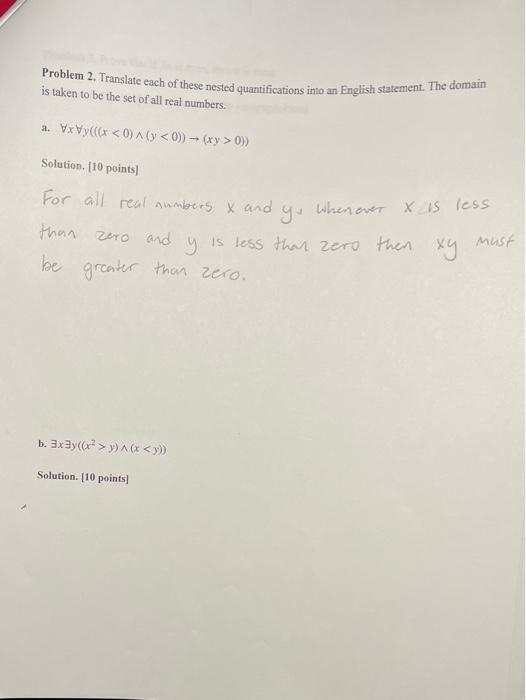 Problem 2. Translate each of these nested quantifications into an English statement. The domain
is taken to be the set of all real numbers.
a. ∀x∀y(((x < 0) ∧ (y < 0)) → (xy > 0))
Solution. [10 points]
For all real numbers x and y, whenever x is less
than zero and y is less than zero then xy must
be greater than zero.
b. ∃x∃y((x² > y) ∧ (x < y))
Solution. [10 points]